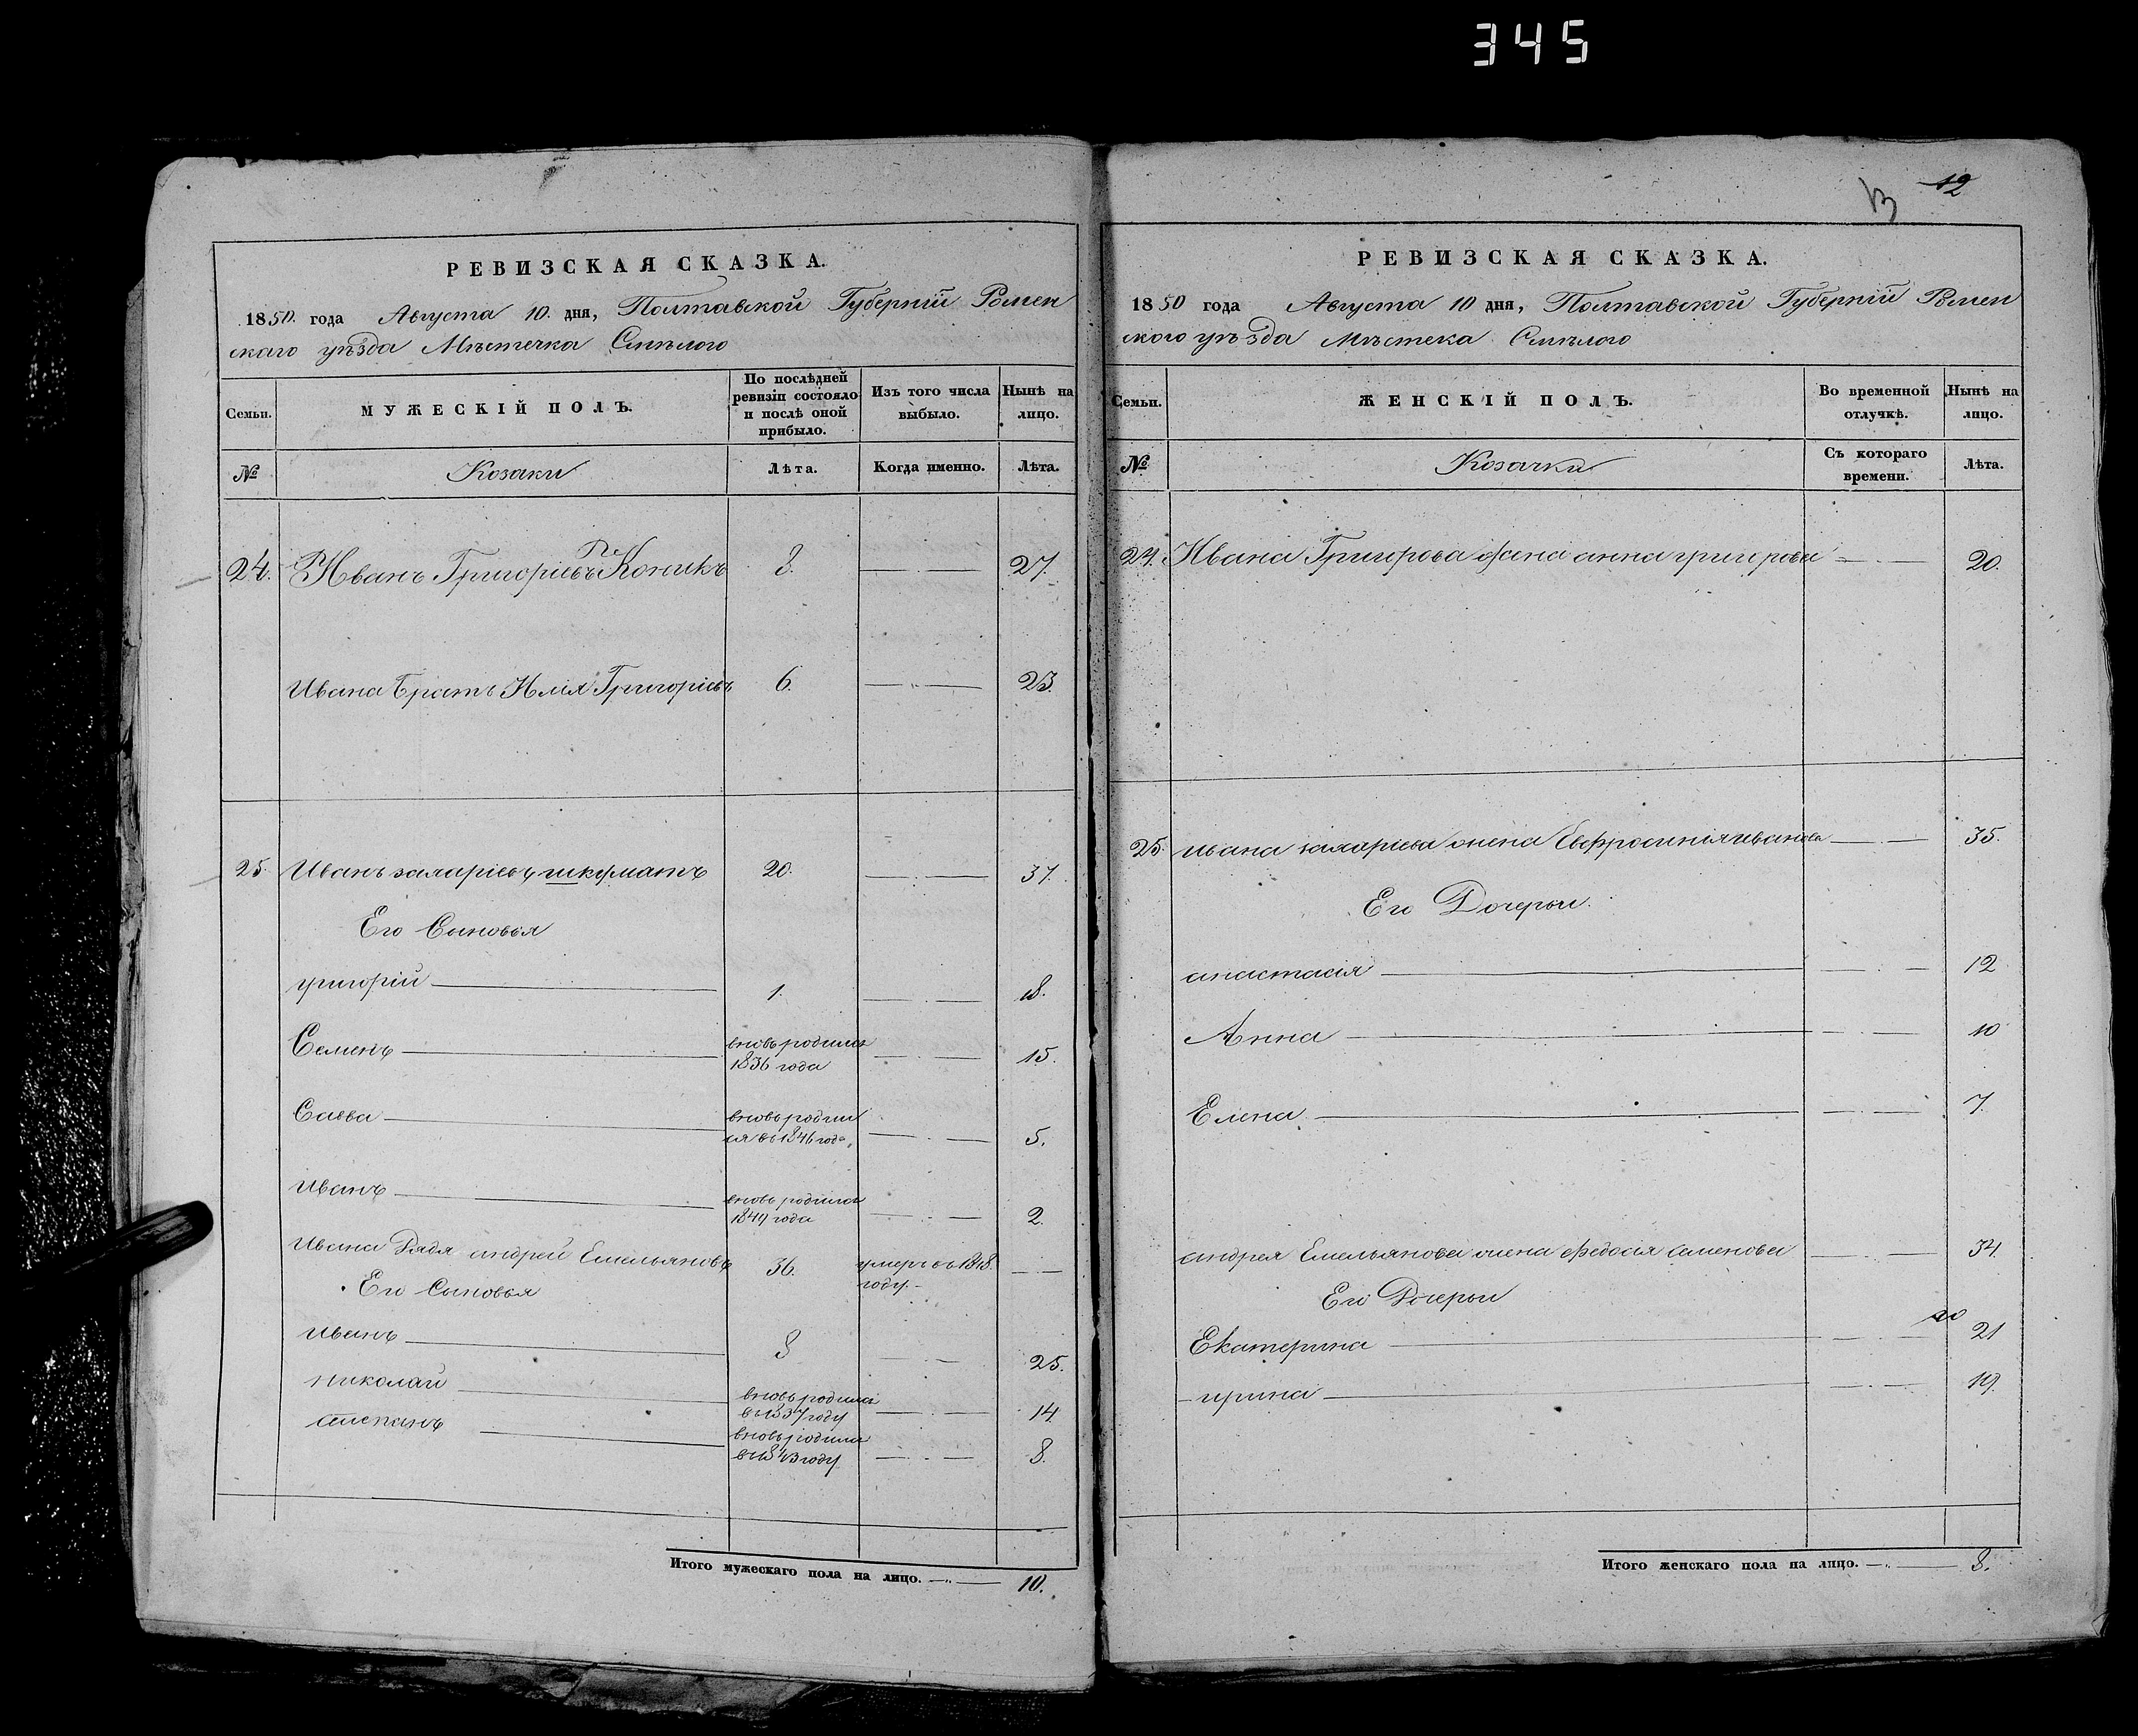 345
РЕВИЗСКАЯ СКАЗКА.
1850. года Августа 10. дня, Полтавской Губерніи Ромен
скаго уѣзда Мѣстечка Смѣлого
Семьи.
МУЖЕСКІЙ ПОЛЪ.
По послѣдней ревизіи состояло и послѣ оной прибыло.
Изъ того числа выбыло.
Нынѣ на лицо.
№
Козаки
Лѣта.
Когда именно.
Лѣта.
24. Иванъ Григорьевъ Коникъ 8. 27.
Ивана Братъ Илія Григорьевъ 6. 23.
25 Иванъ захарьевъ шкуматъ 20. 37.
Его Сыновья
григорій 1. 18.
Семенъ вновь родился 1836 года 15.
Савва вновь родил
ся въ 1846 года 5.
иванъ вновь родился 1849 года 2.
Ивана Дядя андрей Емельяновъ 36. умеръ въ 1848. году
Его Сыновья
иванъ 8 25.
николай вновь родился въ 1837 году 14
степанъ вновь родился въ 1843 году 8.
Итого мужескаго пола на лицо. 10.
13 12
РЕВИЗСКАЯ СКАЗКА.
1850 года Августа 10 дня, Полтавской Губерніи Ромен
ского уѣзда мѣстека Смѣлого
Семьи.
ЖЕНСКІЙ ПОЛЪ.
Во временной отлучкѣ.
Нынѣ на лицо.
№
Козачки
Съ котораго времени.
Лѣта.
24. Ивана Григорьева жена анна григорьева 20.
25. ивана захарьева жена Евфросинія иванова 35.
Его Дочери
анастасія 12
Анна 10
Елена 7.
андрея Емельянова жена федосія семенова 34.
Его Дочери
Екатерина 20 21
ирина 19.
Итого женскаго пола на лицо. 8.